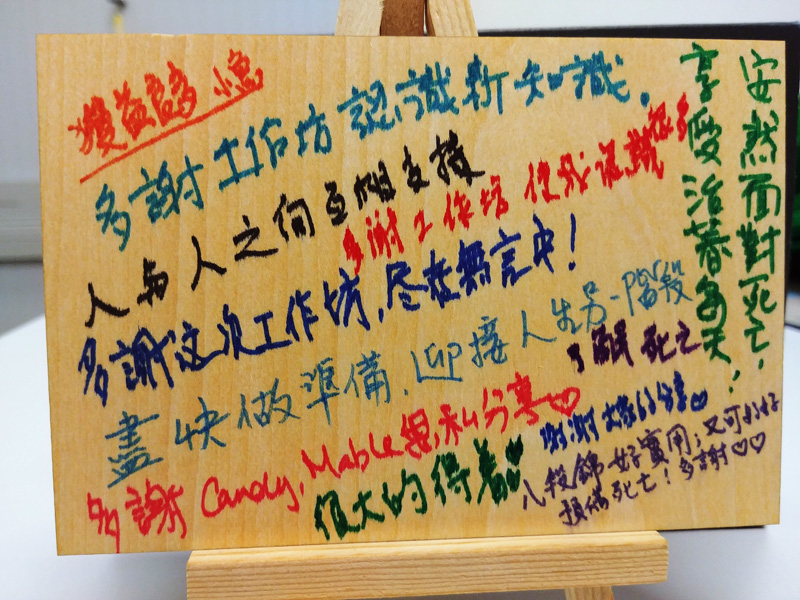 獲益多
多謝工作坊 認識新知識.
人与人之间互相支持
多謝工作坊 使我認識很多
多謝这次工作坊,尽在無言中!
盡快做準備,迎接人生另一階段
了解死亡
多謝 Candy, Mable 無私分享♡
很大的得着♥
謝謝 的分享♥
八段錦好實用;又可以好好
預備死亡!多謝♡♡
安然面對死亡!
享受活著每天!